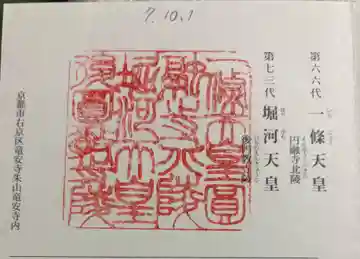 7.10.1
第六六代 一條天皇
円融寺北陵
第七三代 堀河天皇
後円教寺陵
一條天皇圓
融寺北陵
堀河天皇
後圓教寺陵
京都市右京区竜安寺朱山竜安寺内